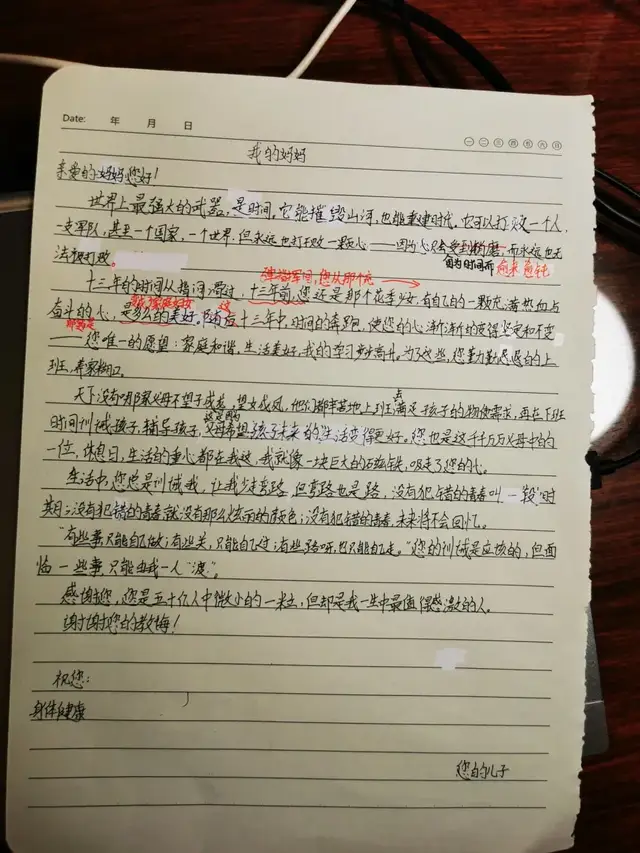 Date: 年 月 日
一 二 三 四 五 六 日
我的妈妈
亲爱的妈妈您好!
世界上最强大的武器,是时间。它能摧毁山河,也能重建时代。它可以打败一个人,
一支军队,甚至一个国家,一个世界。但永远也打不败一颗心——因为心只会受到折磨,而永远也无
因为时间而 愈来愈钝
法被打败。
您从那个充
十三年的时间从指间滑过,十三年前,您还是那个花季少女,有自己的一颗充满热血与
奋斗的心,是多么的美好。十三年中,时间的奔跑,使您的心渐渐的变得坚定和不变
——您唯一的愿望:家庭和谐,生活美好,我的学习步步高升。为了这些,您勤勤恳恳的上
班,养家糊口。
天下没有哪家父母不望子成龙,望女成凤,他们都辛苦地上班去满足孩子的物质需求,再在下班
时间训诫孩子,辅导孩子,父母希望孩子未来的生活变得更好。您也是这千千万万父母中的
一位,休息日,生活的重心都在我这,我就像一块巨大的磁铁,吸走了您的心。
生活中,您总是训诫我,让我少走弯路,但弯路也是路,没有犯错的青春叫一段时
期;没有犯错的青春就没有那么炫丽的颜色;没有犯错的青春,未来将不会回忆。
"有些事只能自己做;有些关,只能自己过;有些路呀,也只能自己走。"您的训诫是应该的,但面
临一些事,只能由我一人"渡"。
感谢您,您是五十亿人中微小的一粒,但却是我一生中最值得感激的人。
谢谢您的教悔!
祝您:
身体健康
您的儿子